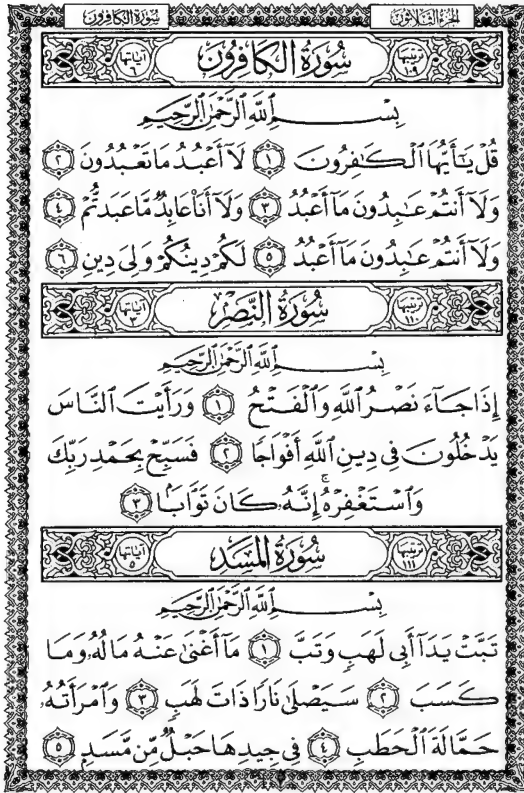 الجزء الثلاثون
سورة الكافرون
ترتيبها ١٠٩ سُورَةُ الكَافِرُونَ آياتها ٦
بِسْمِ ٱللَّهِ ٱلرَّحْمَٰنِ ٱلرَّحِيمِ
قُلْ يَٰٓأَيُّهَا ٱلْكَٰفِرُونَ ١ لَآ أَعْبُدُ مَا تَعْبُدُونَ ٢
وَلَآ أَنتُمْ عَٰبِدُونَ مَآ أَعْبُدُ ٣ وَلَآ أَنَا۠ عَابِدٌ مَّا عَبَدتُّمْ ٤
وَلَآ أَنتُمْ عَٰبِدُونَ مَآ أَعْبُدُ ٥ لَكُمْ دِينُكُمْ وَلِىَ دِينِ ٦
ترتيبها ١١٠ سُورَةُ النَّصْرِ آياتها ٣
بِسْمِ ٱللَّهِ ٱلرَّحْمَٰنِ ٱلرَّحِيمِ
إِذَا جَآءَ نَصْرُ ٱللَّهِ وَٱلْفَتْحُ ١ وَرَأَيْتَ ٱلنَّاسَ
يَدْخُلُونَ فِى دِينِ ٱللَّهِ أَفْوَاجًا ٢ فَسَبِّحْ بِحَمْدِ رَبِّكَ
وَٱسْتَغْفِرْهُ ۚ إِنَّهُۥ كَانَ تَوَّابًۢا ٣
ترتيبها ١١١ سُورَةُ المَسَدِ آياتها ٥
بِسْمِ ٱللَّهِ ٱلرَّحْمَٰنِ ٱلرَّحِيمِ
تَبَّتْ يَدَآ أَبِى لَهَبٍ وَتَبَّ ١ مَآ أَغْنَىٰ عَنْهُ مَالُهُۥ وَمَا
كَسَبَ ٢ سَيَصْلَىٰ نَارًا ذَاتَ لَهَبٍ ٣ وَٱمْرَأَتُهُۥ
حَمَّالَةَ ٱلْحَطَبِ ٤ فِى جِيدِهَا حَبْلٌ مِّن مَّسَدٍۭ ٥